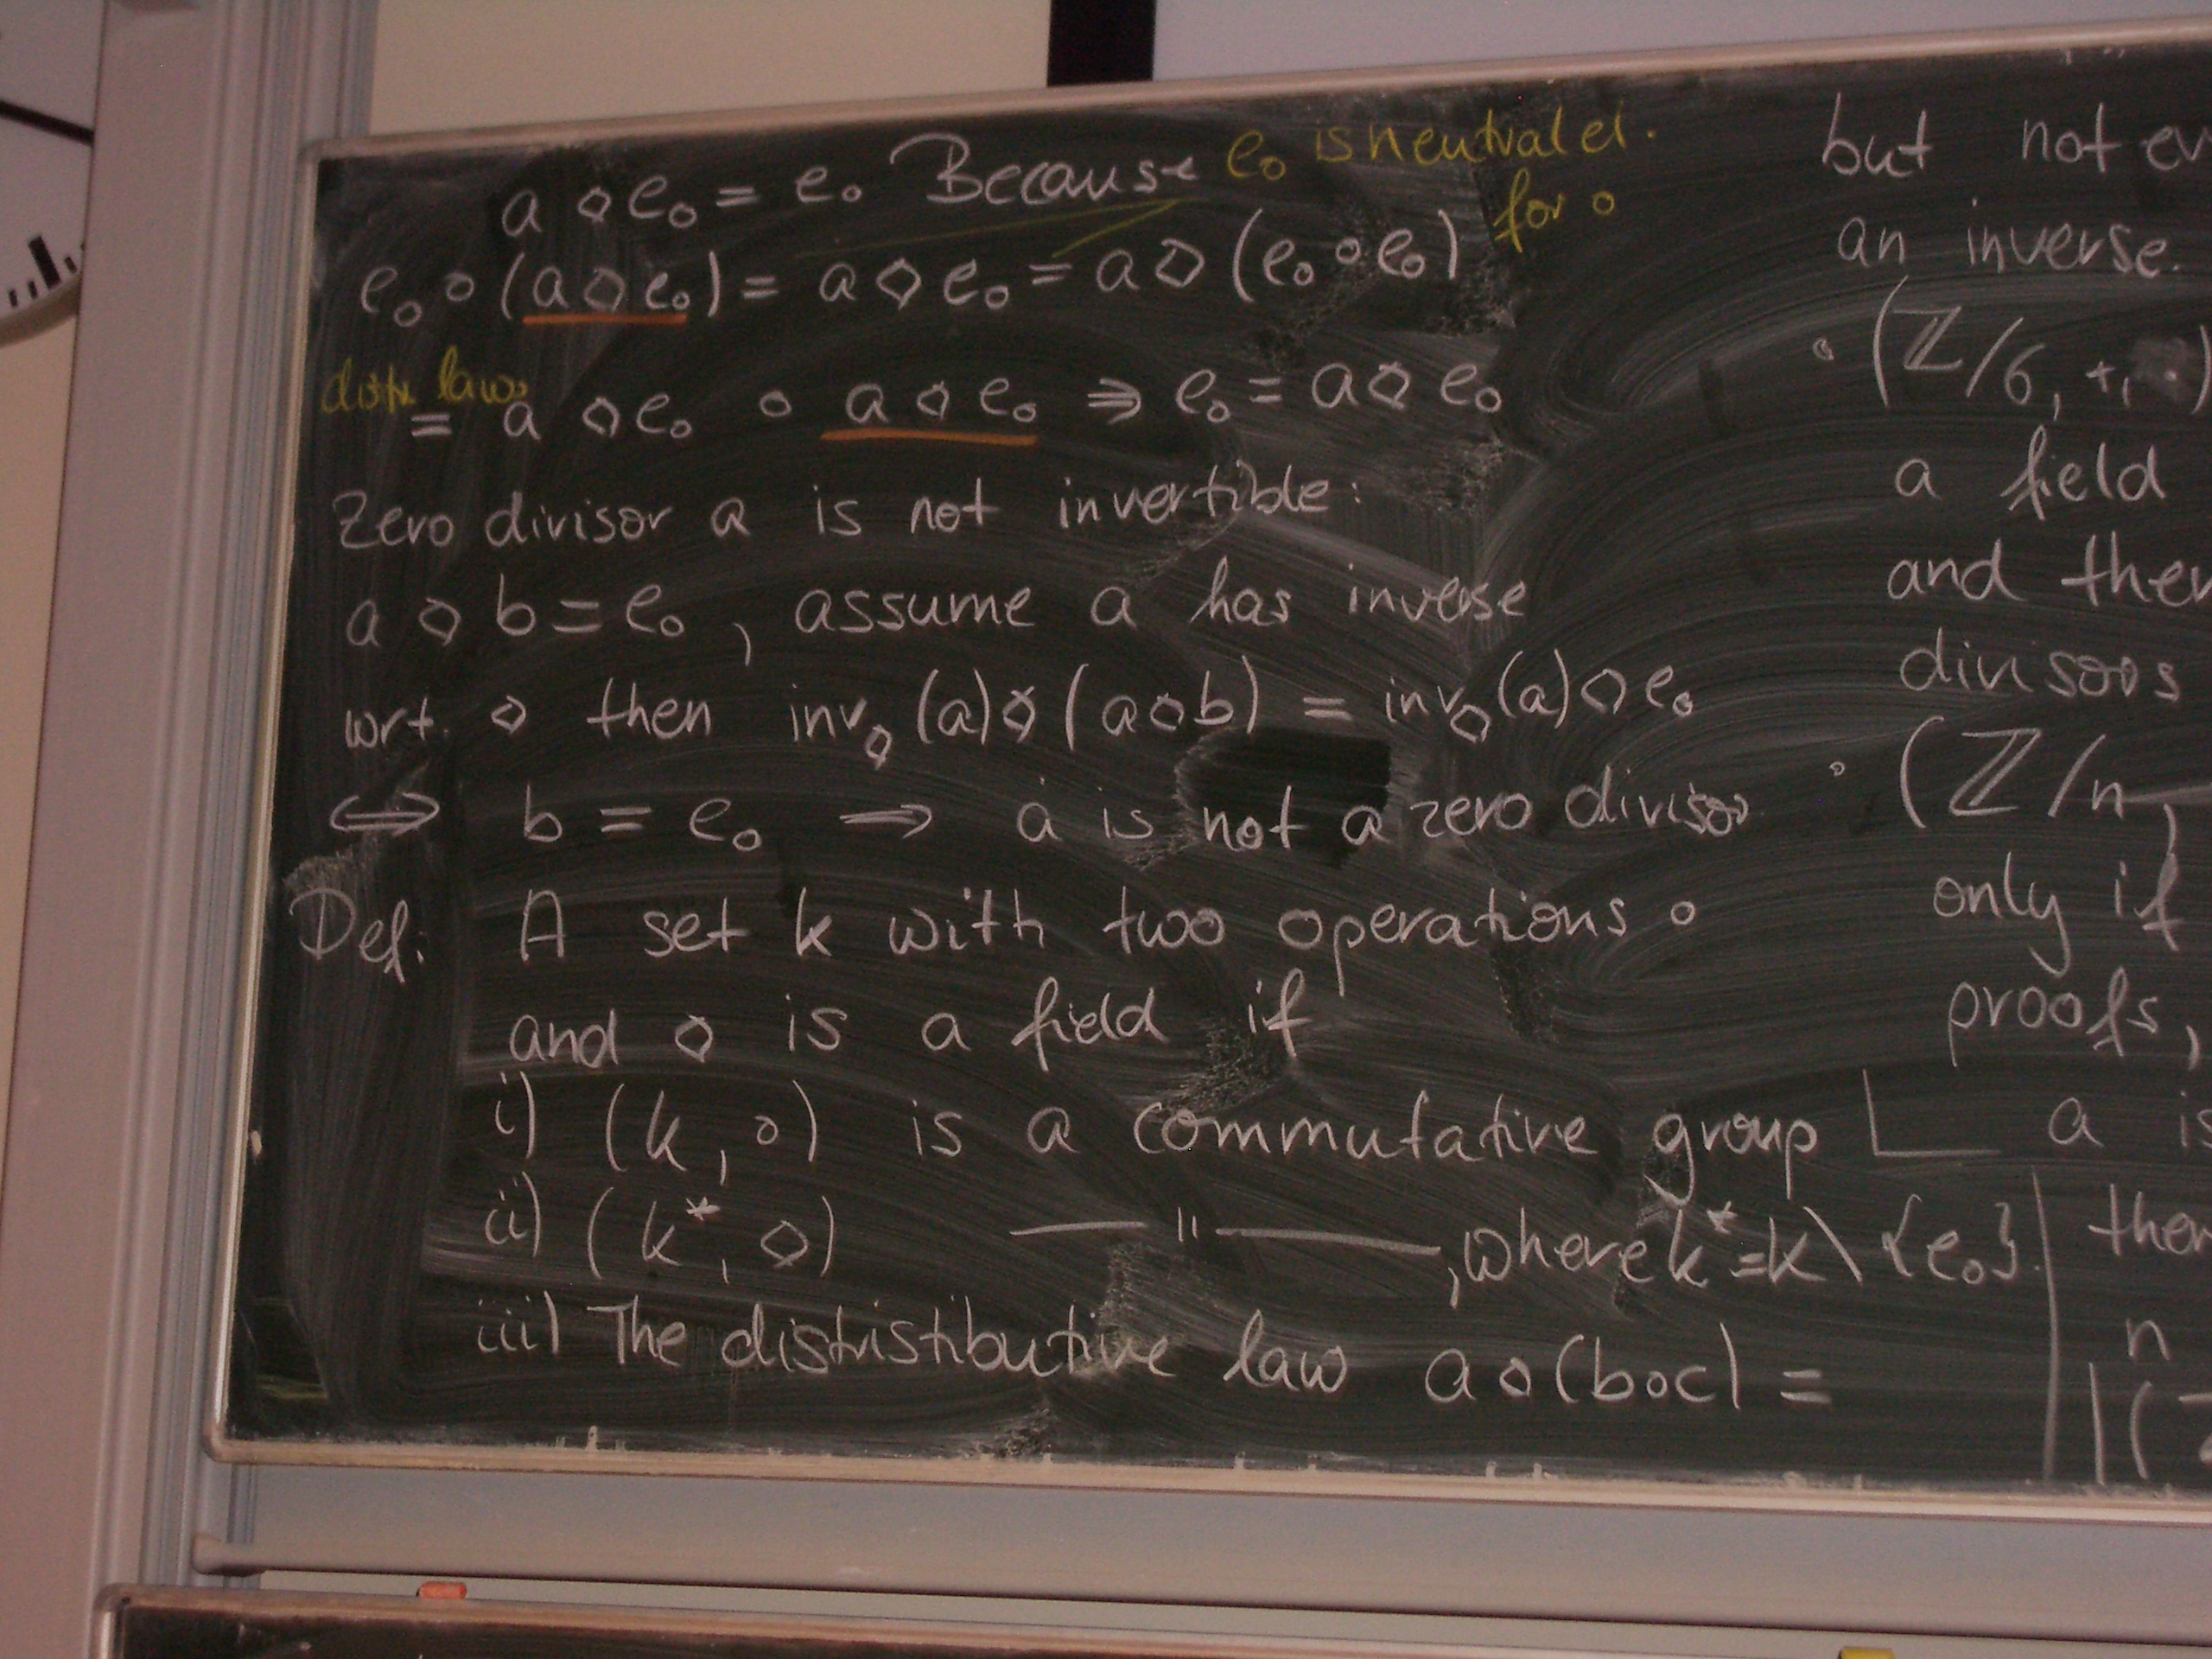 a ◇ e₀ = e₀ Because e₀ is neutral el.
for ∘
e₀ ∘ (a ◇ e₀) = a ◇ e₀ = a ◇ (e₀ ∘ e₀)
distr. law
= a ◇ e₀ ∘ a ◇ e₀ ⇒ e₀ = a ◇ e₀
Zero divisor a is not invertible:
a ◇ b = e₀, assume a has inverse
wrt. ◇ then inv◇(a) ◇ (a ◇ b) = inv◇(a) ◇ e₀
⇔ b = e₀ ⇒ a is not a zero divisor
Def. A set k with two operations ∘
and ◇ is a field if
i) (k, ∘) is a commutative group
ii) (k*, ◇) —— " ——, where k* = k \ {e₀}.
iii) The distristibutive law a ◇ (b ∘ c) =
but not ev
an inverse.
• (ℤ/6, +, ·)
a field
and ther
divisors
• (ℤ/n,
only if
proofs,
a is
then
n
|(